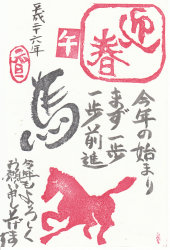 迎春
午
平成二十六年
元旦
馬
今年の始まり
まず一歩
一歩前進
今年もよろしく
お願い申し上げます